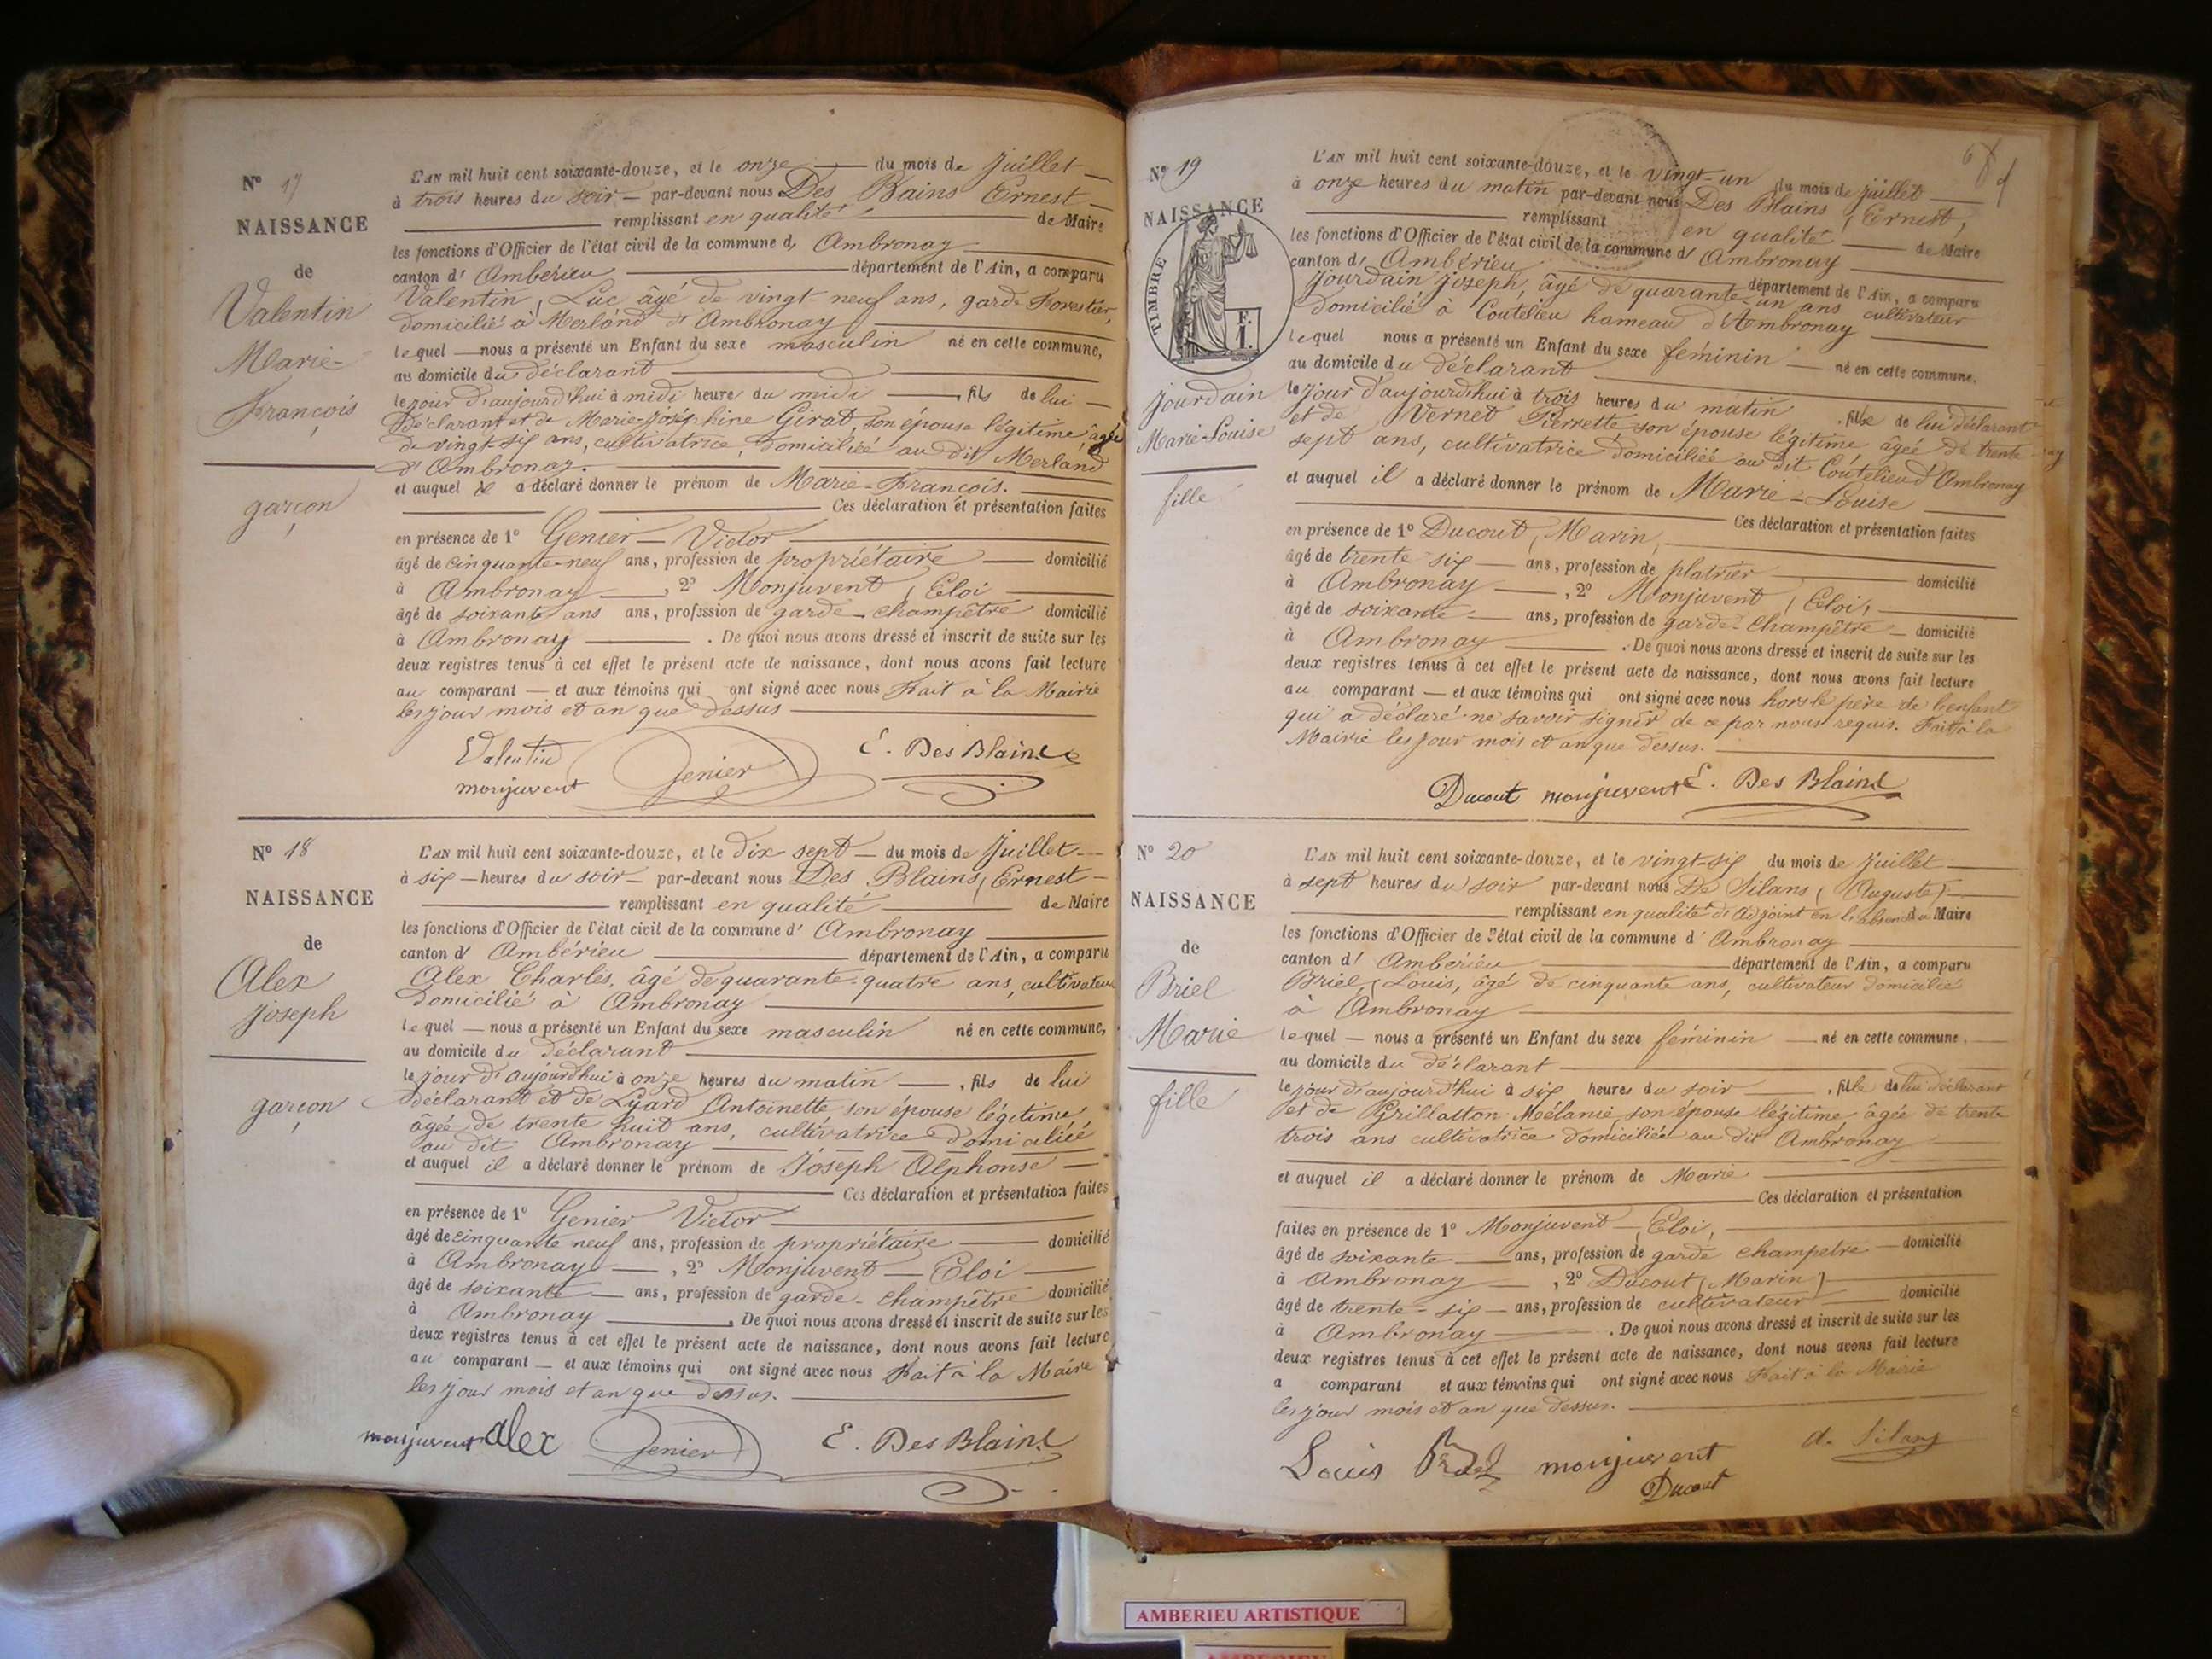 N° 17
NAISSANCE
de
Valentin
Marie-
François
garçon
L'AN mil huit cent soixante-douze, et le onze du mois de Juillet
à trois heures du soir par-devant nous Des Blains Ernest
remplissant en qualité de Maire
les fonctions d'Officier de l'état civil de la commune d' Ambronay
canton d' Ambérieu département de l'Ain, a comparu
Valentin, Luc âgé de vingt-neuf ans, garde Forestier,
domicilié à Merland d'Ambronay
lequel nous a présenté un Enfant du sexe masculin né en cette commune,
au domicile du déclarant
le jour d'aujourd'hui à midi heure du midi , fils de lui
Déclarant et de Marie-Joséphine Girat, son épouse légitime âgée
de vingt-six ans, cultivatrice, domiciliée au dit Merland
d'Ambronay.
et auquel il a déclaré donner le prénom de Marie-François.
Ces déclaration et présentation faites
en présence de 1° Genier Victor
âgé de cinquante-neuf ans, profession de propriétaire domicilié
à Ambronay , 2° Monjuvent, Eloi
âgé de soixante ans ans, profession de garde-champêtre domicilié
à Ambronay . De quoi nous avons dressé et inscrit de suite sur les
deux registres tenus à cet effet le présent acte de naissance, dont nous avons fait lecture
au comparant et aux témoins qui ont signé avec nous Fait à la Mairie
les jour mois et an que dessus
Valentin
monjuvent Genier E. Des Blains
N° 18
NAISSANCE
de
Alex
Joseph
garçon
L'AN mil huit cent soixante-douze, et le dix-sept du mois de Juillet
à six heures du soir par-devant nous Des Blains, Ernest
remplissant en qualité de Maire
les fonctions d'Officier de l'état civil de la commune d' Ambronay
canton d' Ambérieu département de l'Ain, a comparu
Alex Charles, âgé de quarante-quatre ans, cultivateur
domicilié à Ambronay
lequel nous a présenté un Enfant du sexe masculin né en cette commune,
au domicile du déclarant
le jour d'aujourd'hui à onze heures du matin , fils de lui
déclarant et de Lyard Antoinette son épouse légitime
âgée de trente huit ans, cultivatrice domiciliée
au dit Ambronay
et auquel il a déclaré donner le prénom de Joseph Alphonse
Ces déclaration et présentation faites
en présence de 1° Genier Victor
âgé de cinquante neuf ans, profession de propriétaire domicilié
à Ambronay , 2° Monjuvent Eloi
âgé de soixante ans, profession de garde-champêtre domicilié
à Ambronay . De quoi nous avons dressé et inscrit de suite sur les
deux registres tenus à cet effet le présent acte de naissance, dont nous avons fait lecture
au comparant et aux témoins qui ont signé avec nous Fait à la Mairie
les jour mois et an que dessus.
monjuvent Alex Genier E. Des Blains
N° 19
NAISSANCE
TIMBRE
F.
1.
Jourdain
Marie-Louise
fille
L'AN mil huit cent soixante-douze, et le vingt-un du mois de juillet
à onze heures du matin par-devant nous Des Blains, Ernest,
remplissant en qualité de Maire
les fonctions d'Officier de l'état civil de la commune d' Ambronay
canton d' Ambérieu département de l'Ain, a comparu
Jourdain Joseph, âgé de quarante-un ans cultivateur
domicilié à Coutelieu hameau d'Ambronay
lequel nous a présenté un Enfant du sexe féminin né en cette commune,
au domicile du déclarant
le jour d'aujourd'hui à trois heures du matin , fille de lui déclarant
et de Vernet Pierrette son épouse légitime âgée de trente
sept ans, cultivatrice domiciliée au dit Coutelieu d'Ambronay
et auquel il a déclaré donner le prénom de Marie-Louise
Ces déclaration et présentation faites
en présence de 1° Ducout, Marin,
âgé de trente-six ans, profession de platrier domicilié
à Ambronay , 2° Monjuvent, Eloi,
âgé de soixante ans, profession de garde-champêtre domicilié
à Ambronay . De quoi nous avons dressé et inscrit de suite sur les
deux registres tenus à cet effet le présent acte de naissance, dont nous avons fait lecture
au comparant et aux témoins qui ont signé avec nous hors le père de l'enfant
qui a déclaré ne savoir signer de ce par nous requis. Fait à la
Mairie les jour mois et an que dessus.
Ducout monjuvent E. Des Blains
N° 20
NAISSANCE
de
Briel
Marie
fille
L'AN mil huit cent soixante-douze, et le vingt-six du mois de juillet
à sept heures du soir par-devant nous De Silans (Auguste)
remplissant en qualité d'adjoint en l'absence du Maire
les fonctions d'Officier de l'état civil de la commune d' Ambronay
canton d' Ambérieu département de l'Ain, a comparu
Briel, Louis, âgé de cinquante ans, cultivateur domicilié
à Ambronay
lequel nous a présenté un Enfant du sexe féminin né en cette commune,
au domicile du déclarant
le jour d'aujourd'hui à six heures du soir , fille de lui déclarant
et de Grillatton Mélanie son épouse légitime âgée de trente
trois ans cultivatrice domiciliée au dit Ambronay
et auquel il a déclaré donner le prénom de Marie
Ces déclaration et présentation
faites en présence de 1° Monjuvent, Eloi,
âgé de soixante ans, profession de garde champetre domicilié
à Ambronay , 2° Ducout (Marin)
âgé de trente-six ans, profession de cultivateur domicilié
à Ambronay . De quoi nous avons dressé et inscrit de suite sur les
deux registres tenus à cet effet le présent acte de naissance, dont nous avons fait lecture
a comparant et aux témoins qui ont signé avec nous Fait à la Mairie
les jour mois et an que dessus.
Louis Briel monjuvent d. Silans
Ducout
AMBERIEU ARTISTIQUE